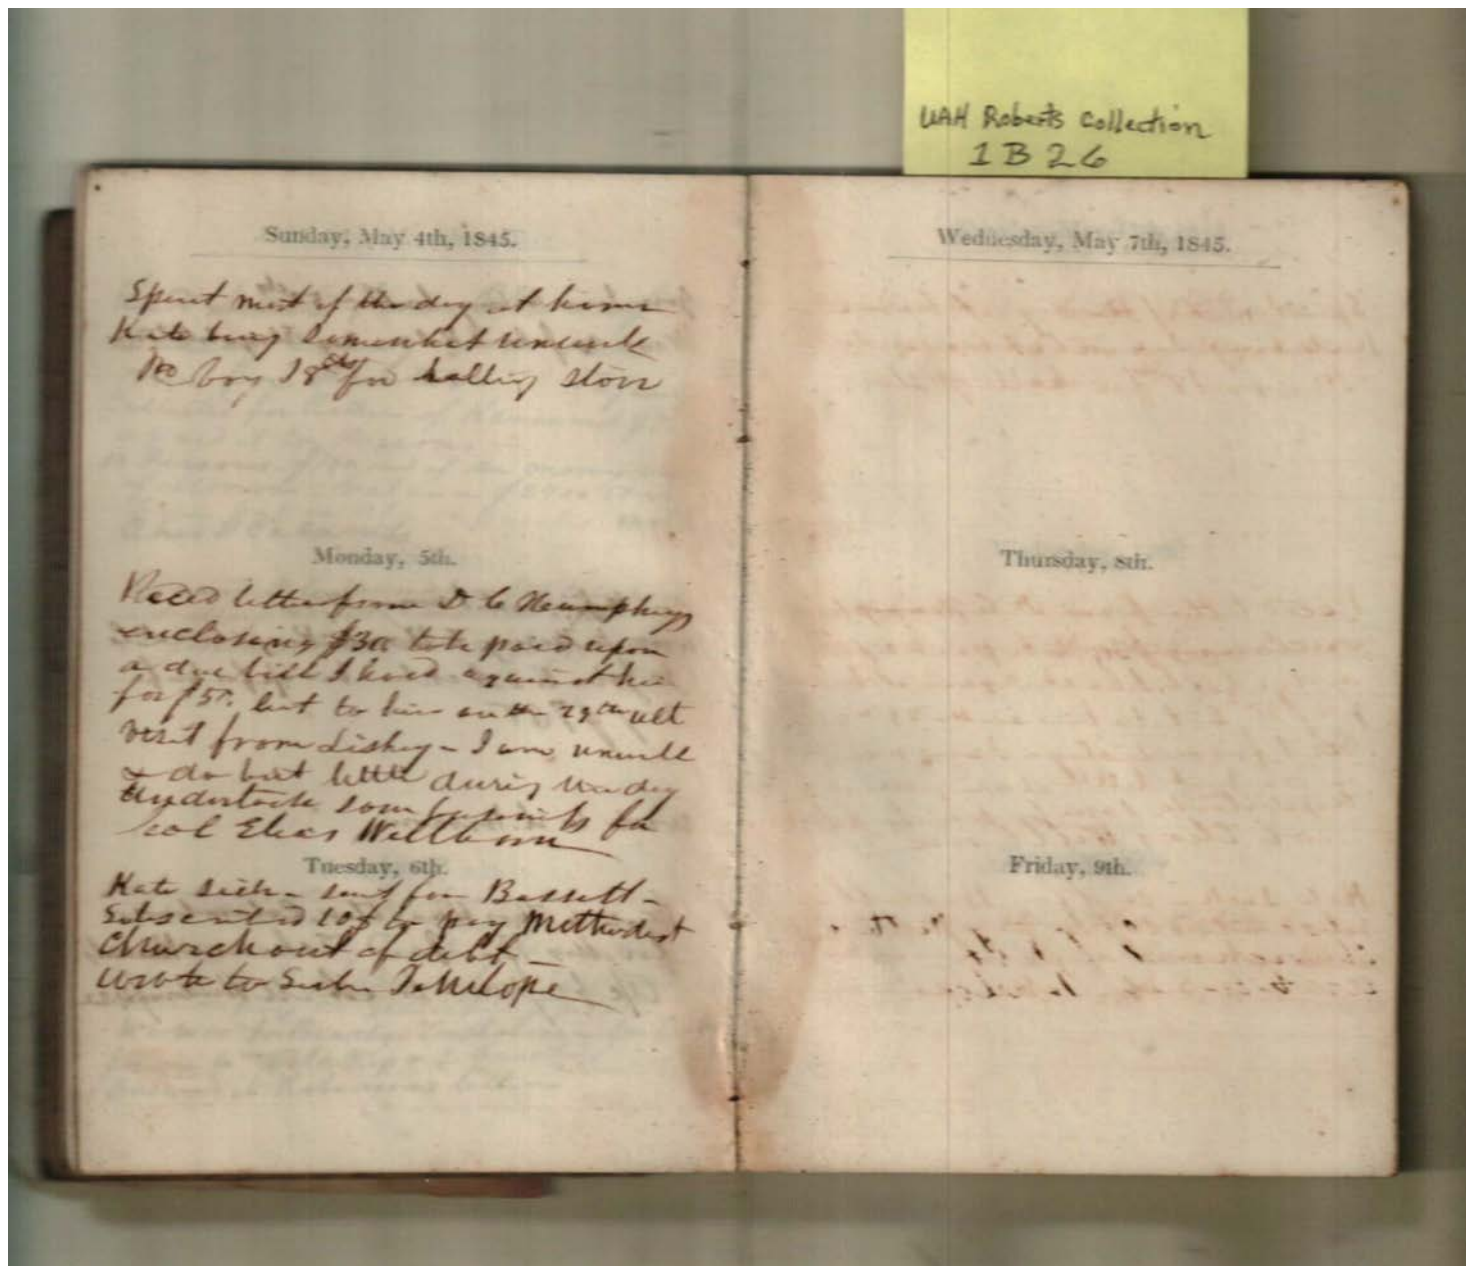 UAH Roberts Collection
1B26
Sunday, May 4th, 1845.
Spent most of the day at home
Kate being somewhat unwell
boy for halling
Monday, 5th.
Recd letter from D C Humphreys
enclosing $30 to be paid upon
a due bill I hold against him
for but to him on the 29th ult
visit from Liskey - I am unwell
& do but little during the day
Undertook some business for
Col Elias Wellborn
Tuesday, 6th.
Kate sick - sent for Bassett -
Subscribed 10$ to pay Methodist
Church out of debt -
wrote to Sister Penelope
Wednesday, May 7th, 1845.
Thursday, 8th.
Friday, 9th.